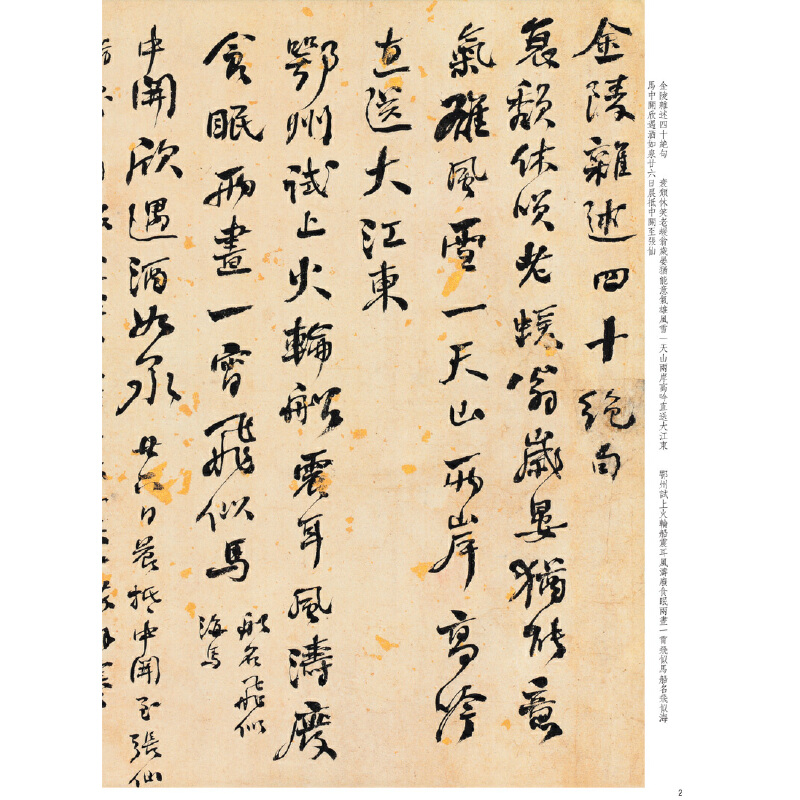 金陵雜述四十絕句　衰頹休笑老蝯翁歲晏猶能意氣雄風雪一天山兩岸高吟直送大江東　鄂州試上火輪船震耳風濤廢食眠兩晝一宵飛似馬船名飛似海
馬中關欣遇酒如泉廿六日晨抵中關至張仙
金陵雜述四十絕句
衰頹休笑老蝯翁歲晏猶能意
氣雄風雪一天山兩岸高吟
直送大江東
鄂州試上火輪船震耳風濤廢
食眠兩晝一宵飛似馬
船名飛似
海馬
中關欣遇酒如泉廿六日晨抵中關至張仙
2